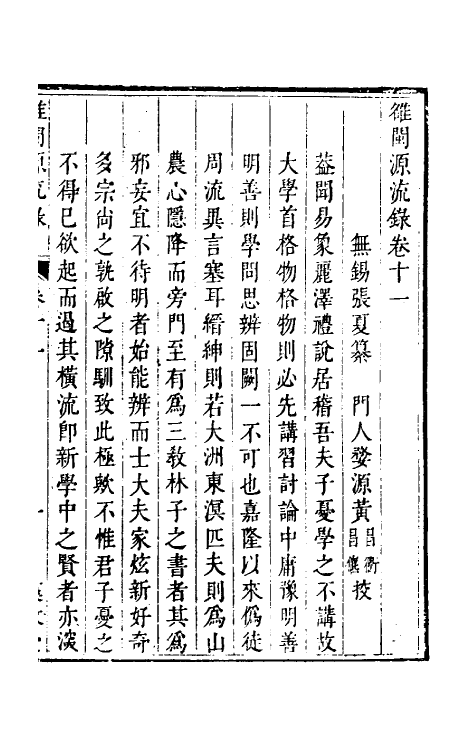 雒閩源流錄卷十一
無錫張夏纂　門人婺源黃昌衢昌㐮挍
葢聞易象麗澤禮說居稽吾夫子憂學之不講故
大學首格物格物則必先講習討論中庸豫明善
明善則學問思辨固闕一不可也嘉隆以來僞徒
周流異言塞耳縉紳則若大洲東溟匹夫則爲山
農心隱降而旁門至有爲三教林子之書者其爲
邪妄宜不待明者始能辨而士大夫家炫新好奇
多宗尙之孰啟之隙馴致此極歟不惟君子憂之
不得已欲起而過其橫流卽新學中之賢者亦深
雒閩源流錄
卷十一
一